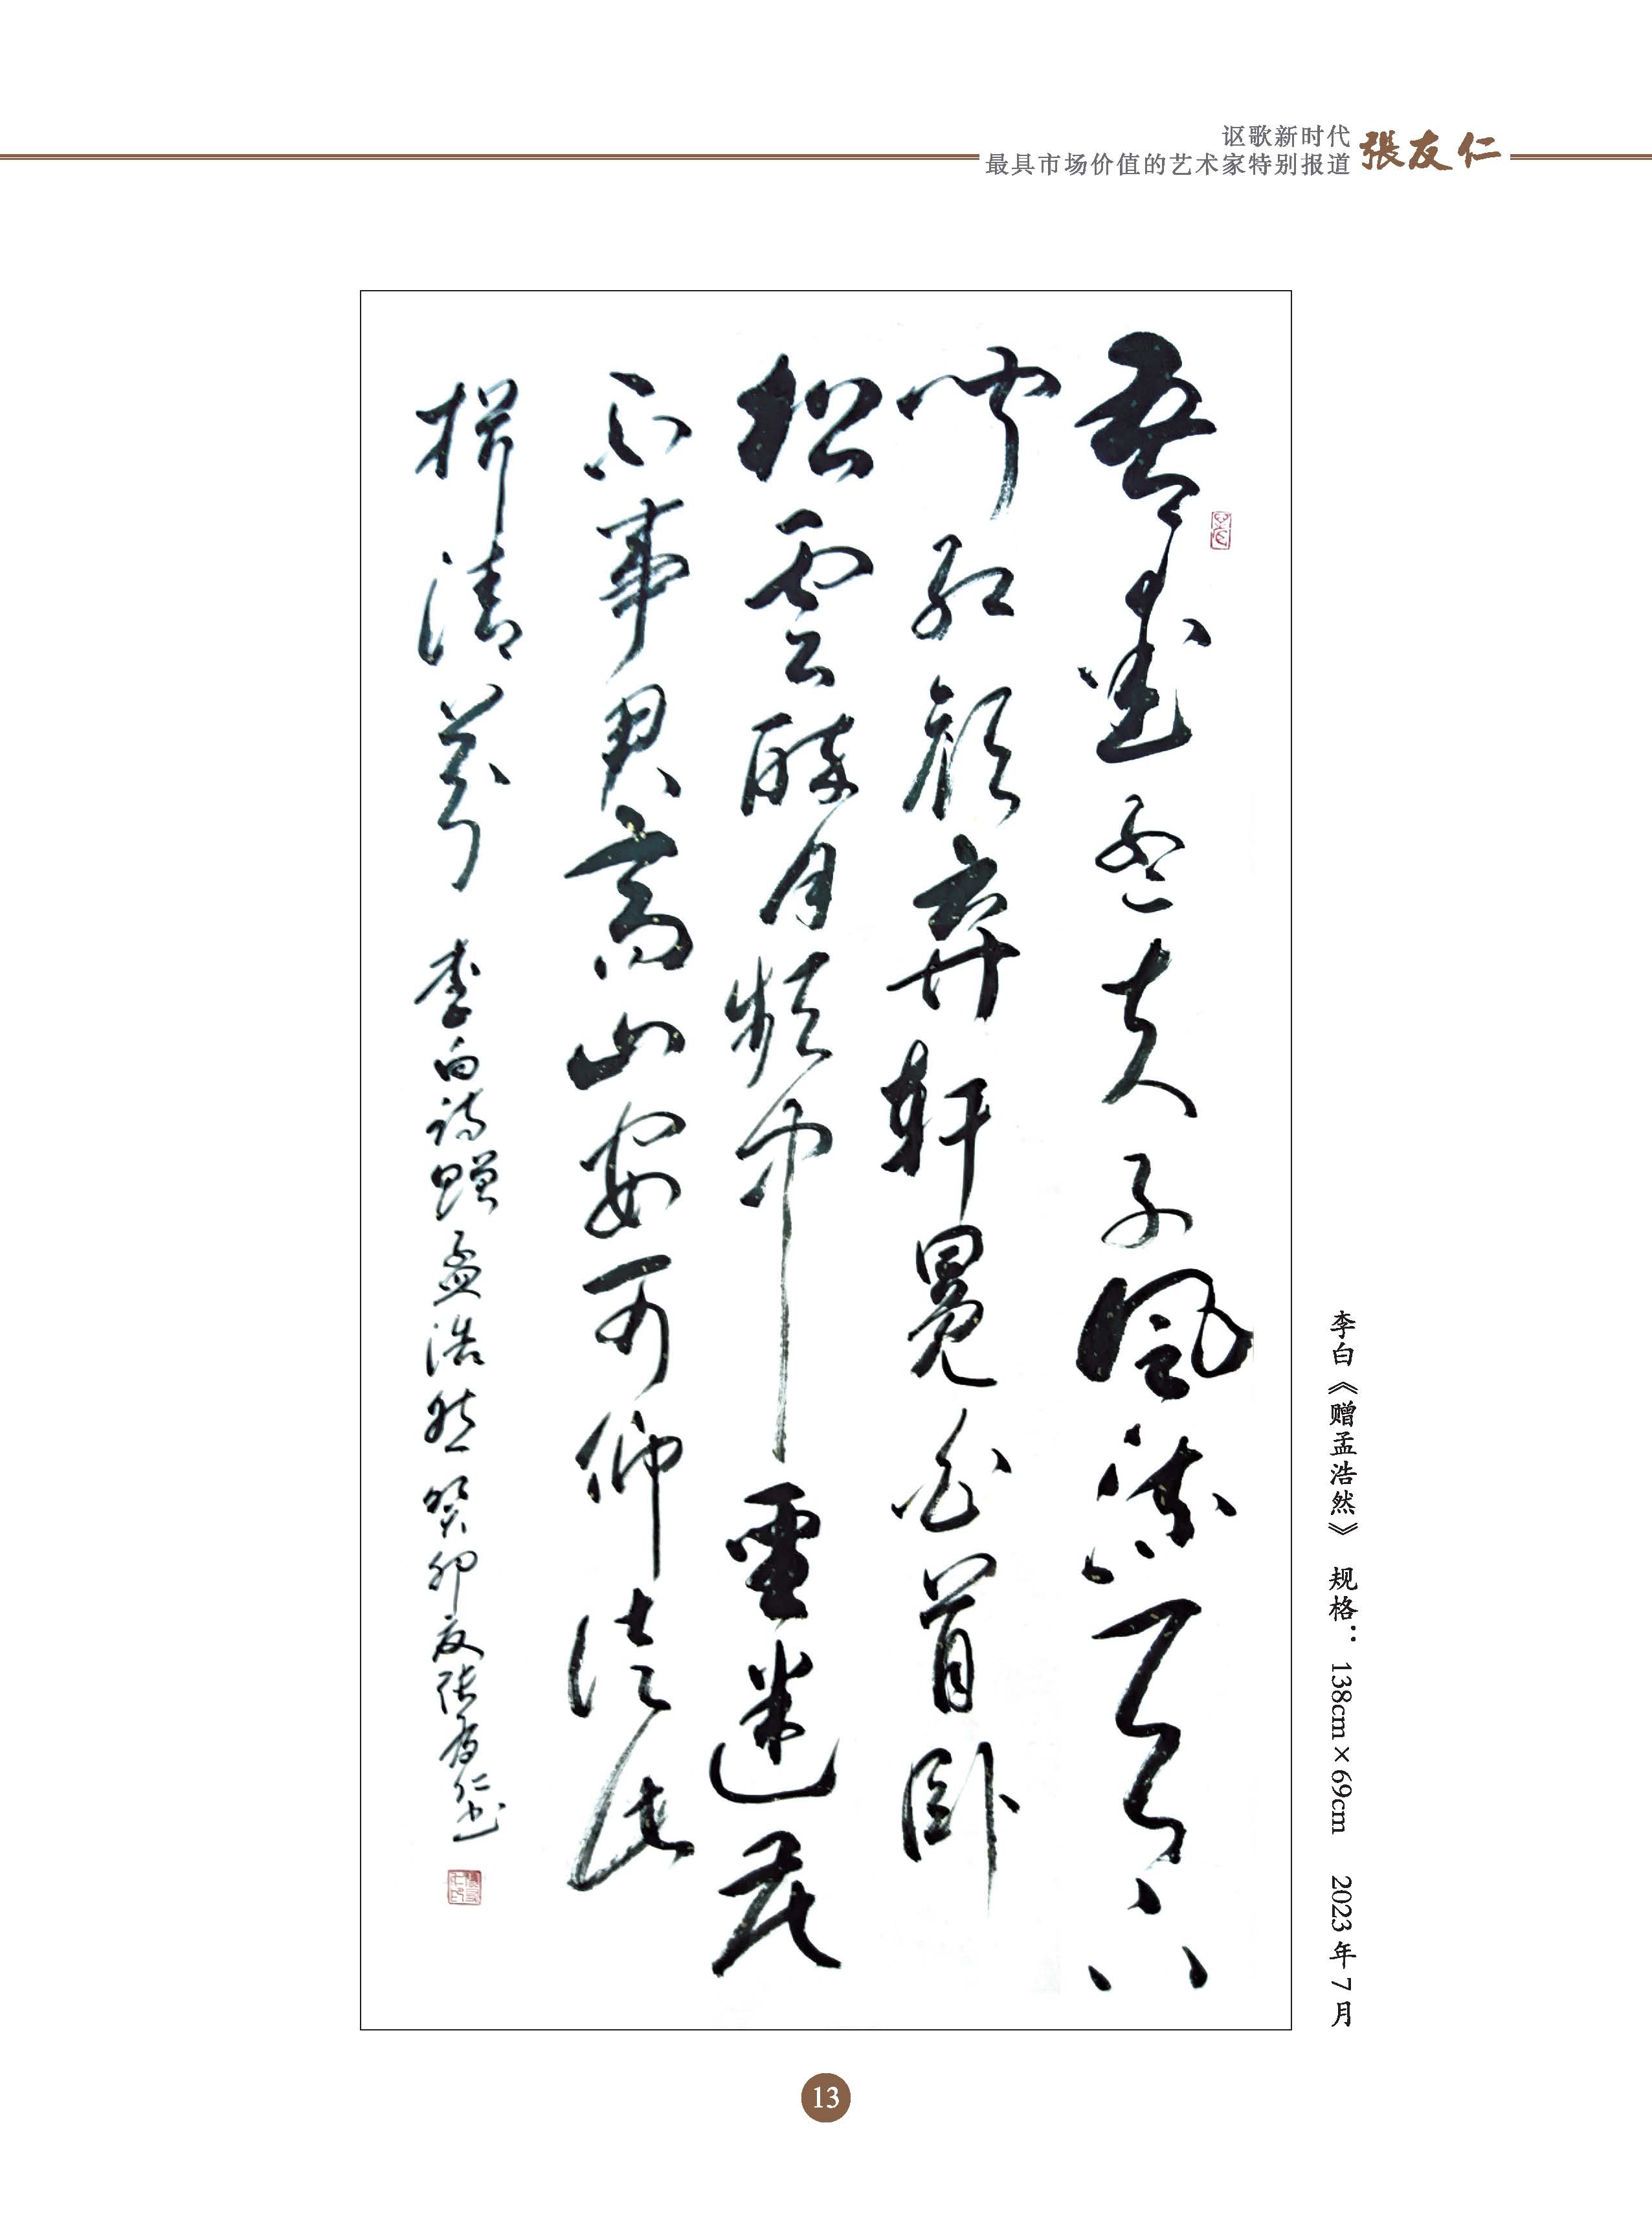 讴歌新时代
最具市场价值的艺术家特别报道
張友仁
吾愛孟夫子風流天下
聞紅顏棄軒冕白首卧
松雲醉月頻中聖迷花
不事君高山安可仰徒此
揖清芬 李白詩贈孟浩然 癸卯夏張友仁書
李白《赠孟浩然》 规格：138cm×69cm 2023年7月
13